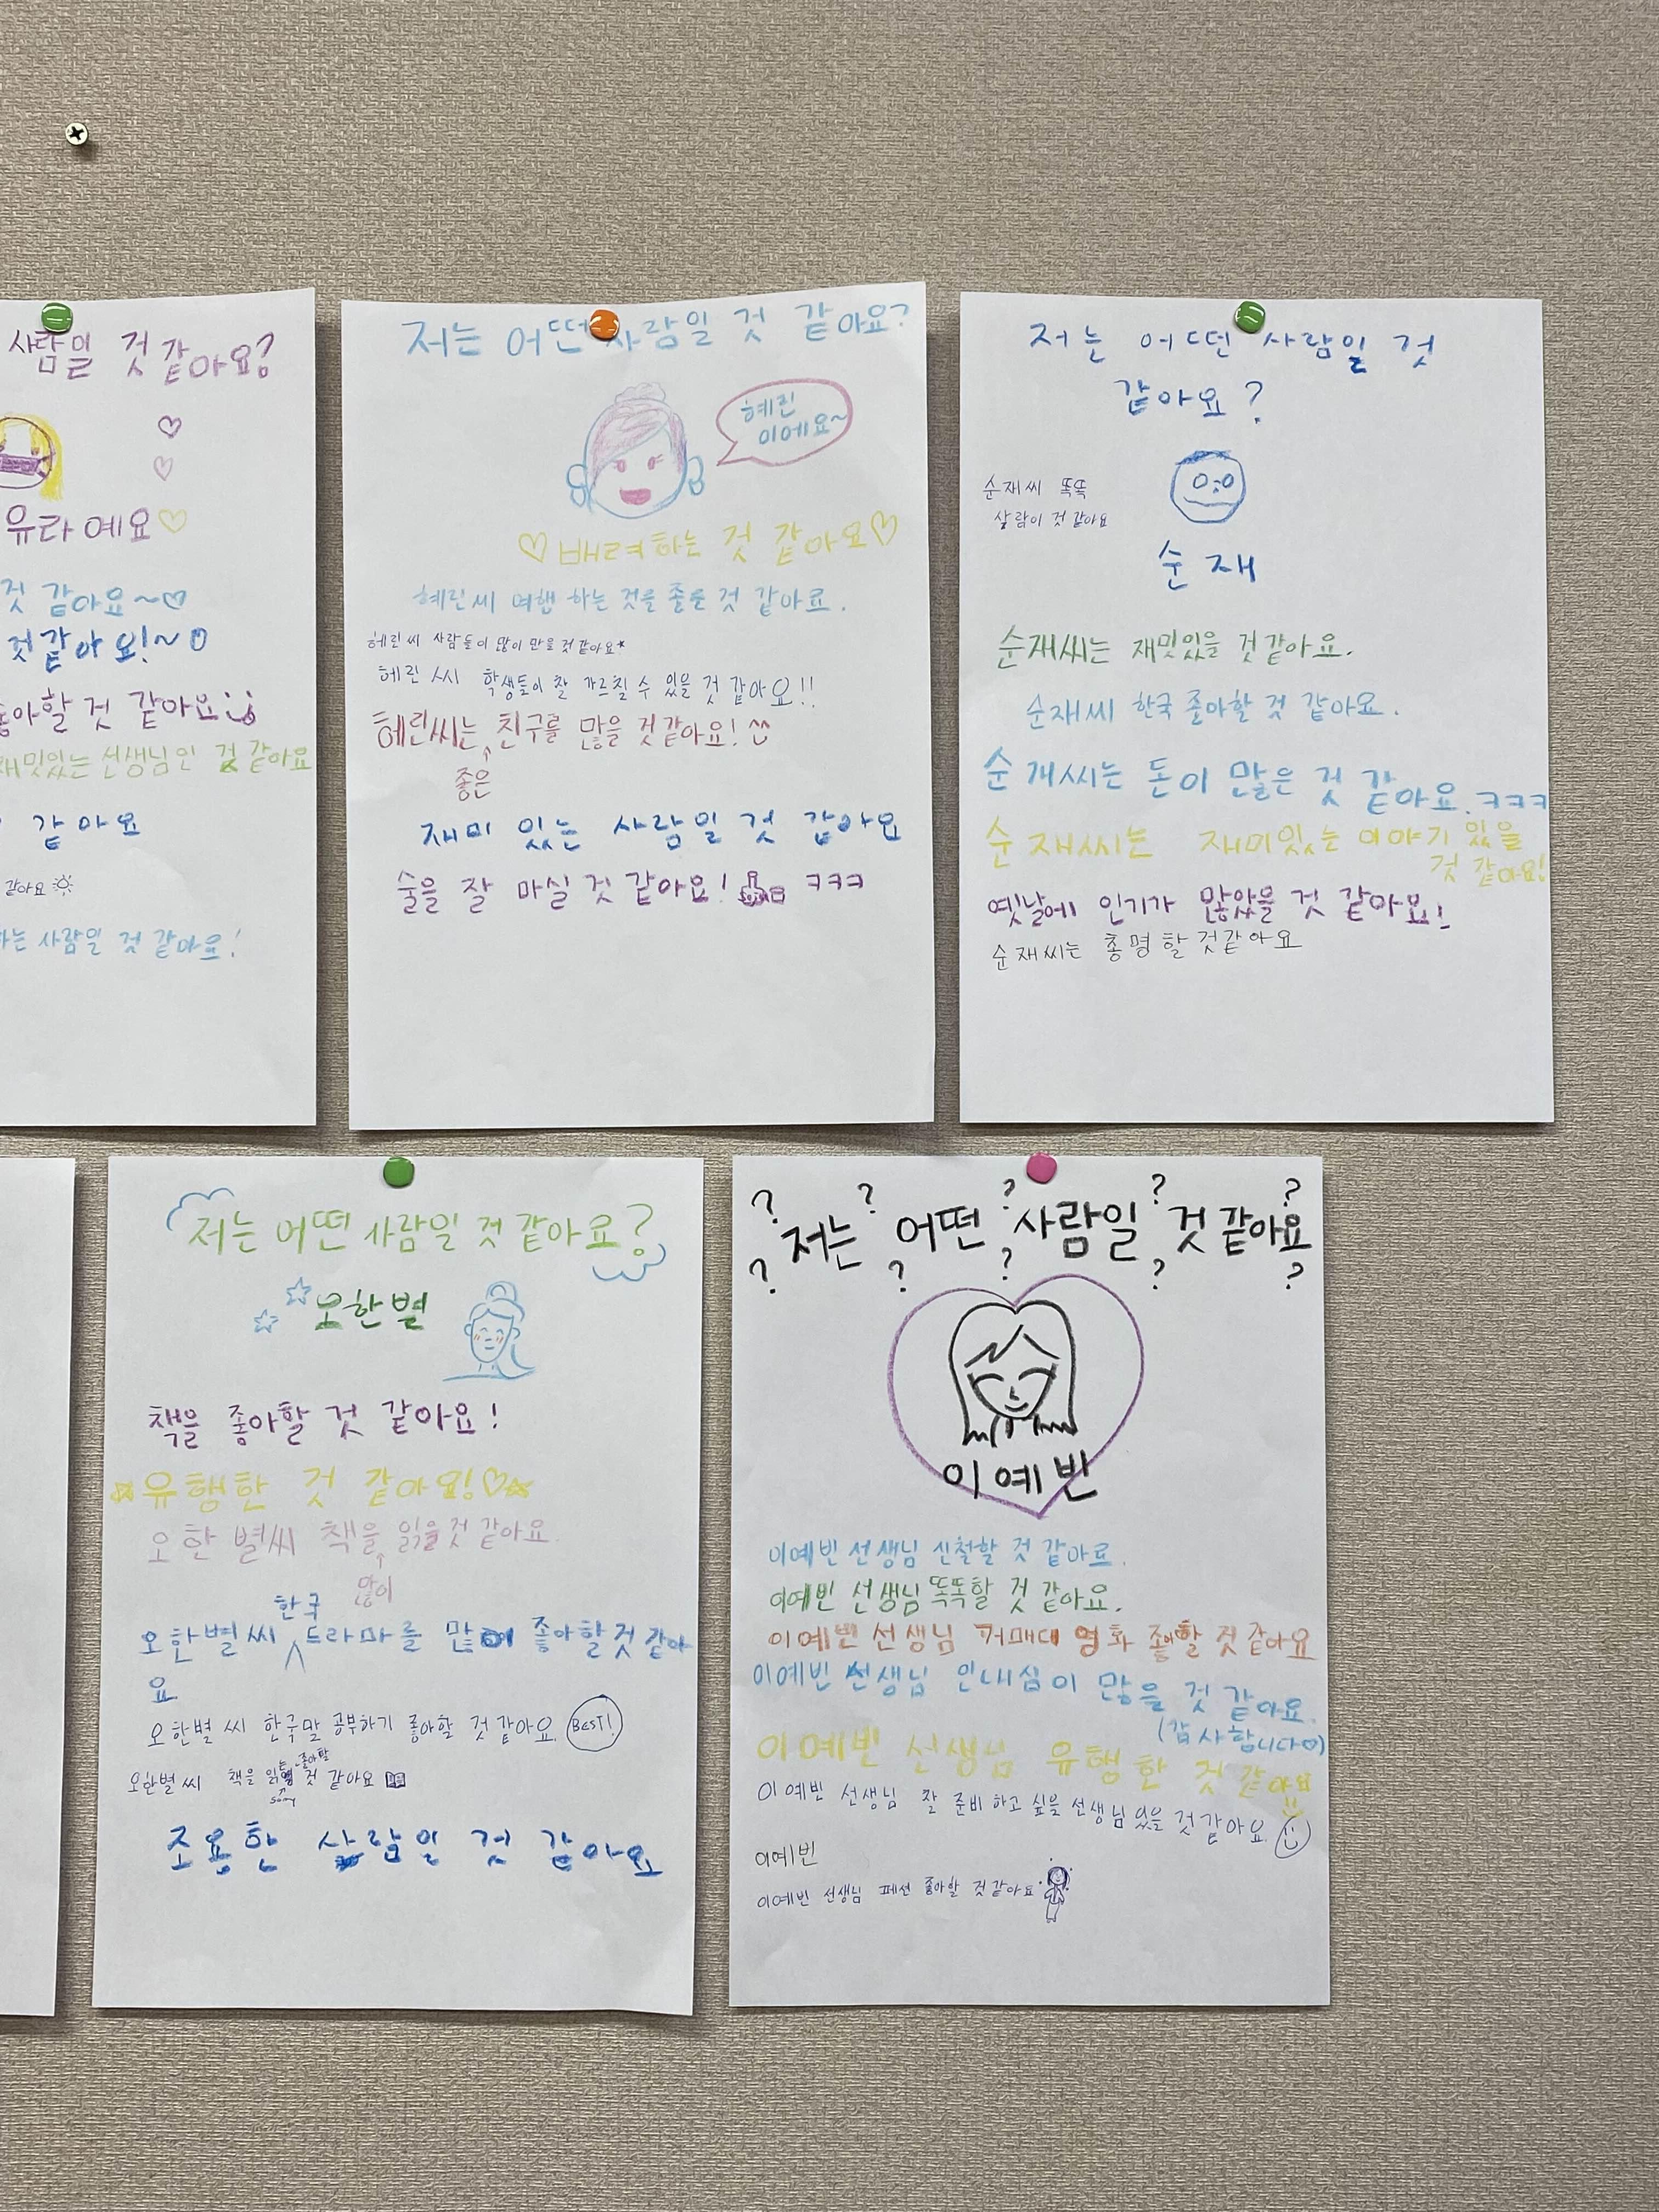 사람일 것 같아요?
유라예요
것 같아요~
것같아요!~
좋아할 것 같아요
재밌있는 선생님인 것 같아요
같아요
같아요
하는 사람일 것 같아요!
저는 어떤 사람일 것 같아요?
혜린
이에요~
배려하는 것 같아요
혜린씨 여행 하는 것을 좋을 것 같아료.
혜린씨 사람들이 많이 만을 것같아요
혜린 씨 학생들이 잘 가르칠 수 있을 것 같아요!!
혜린씨는 친구를 많을 것같아요!
좋은
재미 있는 사람일 것 같아요
술을 잘 마실 것 같아요! ㅋㅋㅋ
저는 어떤 사람일 것
같아요?
순재씨 똑똑
살람이 것 같아요
순재
순재씨는 재밋있을 것같아요.
순재씨 한국 좋아할 것 같아요.
순재씨는 돈이 많은 것 같아요. ㅋㅋㅋ
순재씨는 재미있는 이야기 있을
것 같아요!
옛날에 인기가 많았을 것 같아요!
순재씨는 총명할 것같아요
저는 어떤 사람일 것 같아요?
오한별
책을 좋아할 것 같아요!
유행한 것 같아요!
오한별씨 책을 읽을 것 같아요.
많이
한국
오한별씨 드라마를 많이 좋아할것 같아
요
오한별 씨 한국말 공부하기 좋아할 것 같아요. BEST!
는 좋아할
오한별씨 책을 읽 것 같아요
sorry
조용한 사람일 것 같아요
저는 어떤 사람일 것 같아요
? ? ? ? ?
? ? ? ? ?
이예빈
이예빈 선생님 신철할 것 같아료.
이예빈 선생님 똑똑할 것 같아요.
이예빈 선생님 영화 좋아할 것 같아요
이예빈 선생님 인내심이 많을 것 같아요.
(감사합니다)
이예빈 선생님 유행한 것 같아요
이예빈 선생님 잘 준비하고 싶을 선생님 있을 것 같아요.
이예빈
이예빈 선생님 페션 좋아할 것 같아요